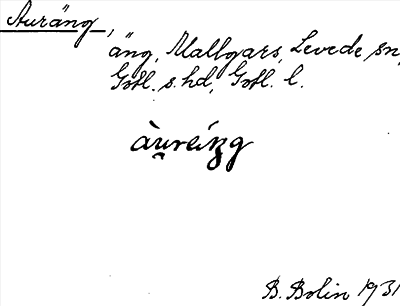 Auräng,
äng, Mallgars, Levede sn,
Gotl. s. hd, Gotl. l.
B. Bolin 1931